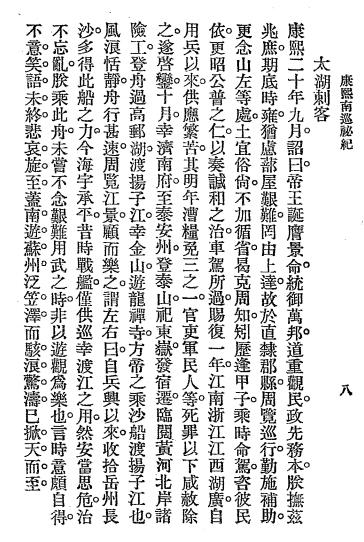 康熙南巡祕紀
八
太湖刺客
康熙二十年九月詔曰。帝王誕膺景命。統御萬邦。道重觀民。政先務本。朕撫茲
兆庶。期底時雍。猶慮蔀屋艱難。罔由上達。故於直隸郡縣。周覽巡行。勤施補助。
更念山左等處。土宜俗尚。不加循省。曷克周知。矧歷逢甲子。乘時命駕。咨彼民
依。更昭公普之仁。以奏誠和之治。車駕所過。賜復一年。江南浙江江西湖廣。自
用兵以來。供應繁苦。其明年漕糧。免三之一。官吏軍民人等。死罪以下。咸赦除
之。遂啓鑾。十月幸濟南府。至泰安州。登泰山。祀東嶽。發宿遷。臨閱黃河北岸諸
險工。登舟過高郵湖。渡揚子江。幸金山。遊龍禪寺。方帝之乘沙船渡揚子江也。
風浪恬靜。舟行甚速。周覽江景。顧而樂之。謂左右曰。自兵興以來。收拾岳州長
沙。多得此船之力。今海宇承平。昔時戰艦。僅供巡幸渡江之用。然安當思危。治
不忘亂。朕乘此舟。未嘗不念艱難用武之時。非以遊觀爲樂也。言時意頗自得。
不意笑語未終。悲哀旋至。蓋南遊蘇州。泛笠澤。而駭浪驚濤。巳掀天而至。